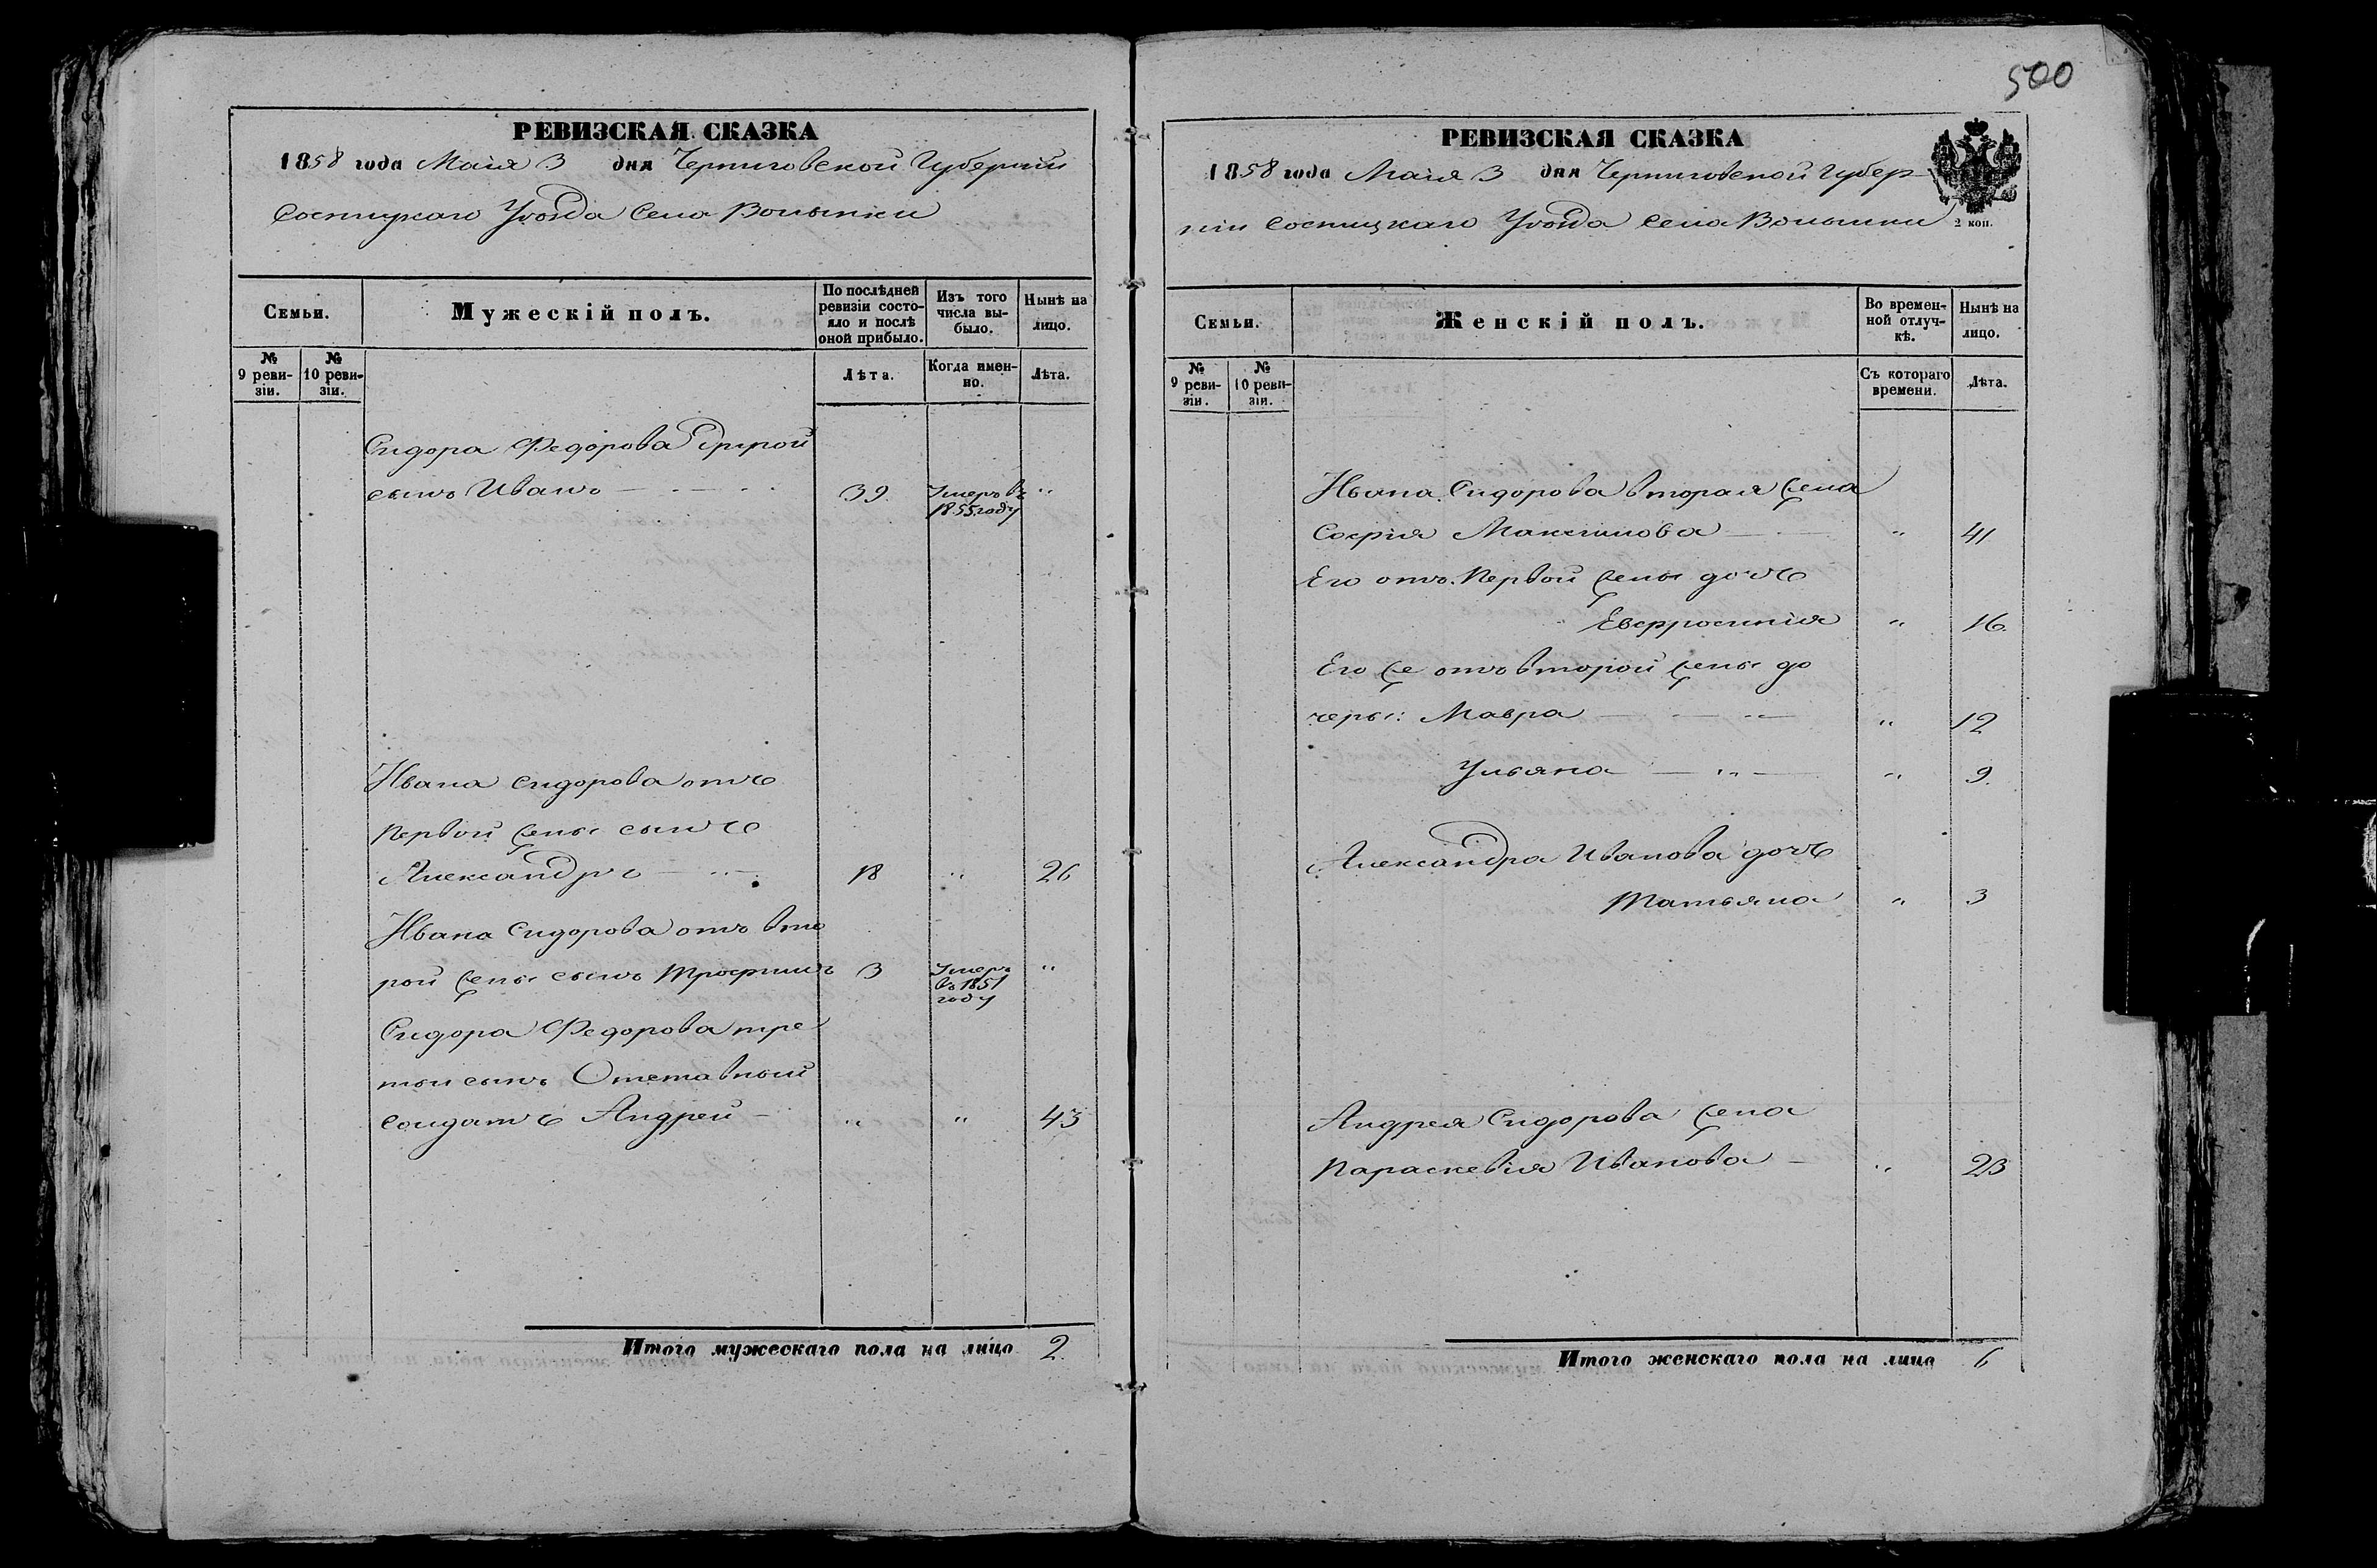 500
РЕВИЗСКАЯ СКАЗКА
1858 года Маія 3 дня Черниговской Губерніи
Сосницкаго Уѣзда Села Волынки
Семьи.
Мужескій полъ.
По послѣдней ревизіи состояло и послѣ оной прибыло.
Изъ того числа выбыло.
Нынѣ на лицо.
№ 9 ревизіи.
№ 10 ревизіи.
Лѣта.
Когда именно.
Лѣта.
Сидора Федорова другой
сынъ Иванъ 39 Умеръ въ 1855 году "
Ивана Сидорова отъ
первой жены сынъ
Александръ 18 " 26
Ивана Сидорова отъ вто
рой жены сынъ Трофимъ 3 Умеръ въ 1851 году "
Сидора Федорова тре
тый сынъ Отставный
солдатъ Андрей " " 43
Итого мужескаго пола на лицо 2
РЕВИЗСКАЯ СКАЗКА
1858 года Маія 3 дня Черниговской Губер
ніи Сосницкаго Уѣзда Села Волынки
2 коп.
Семьи.
Женскій полъ.
Во временной отлучкѣ.
Нынѣ на лицо.
№ 9 ревизіи.
№ 10 ревизіи.
Съ котораго времени.
Лѣта.
Ивана Сидорова вторая жена
Софія Максимова " 41
Его отъ первой жены дочь
Евфросинія " 16
Его же отъ второй жены до
черы: Мавра " 12
Ульяна " 9
Александра Иванова дочь
Татьяна " 3
Андрея Сидорова жена
Параскевія Иванова " 23
Итого женскаго пола на лицо 6